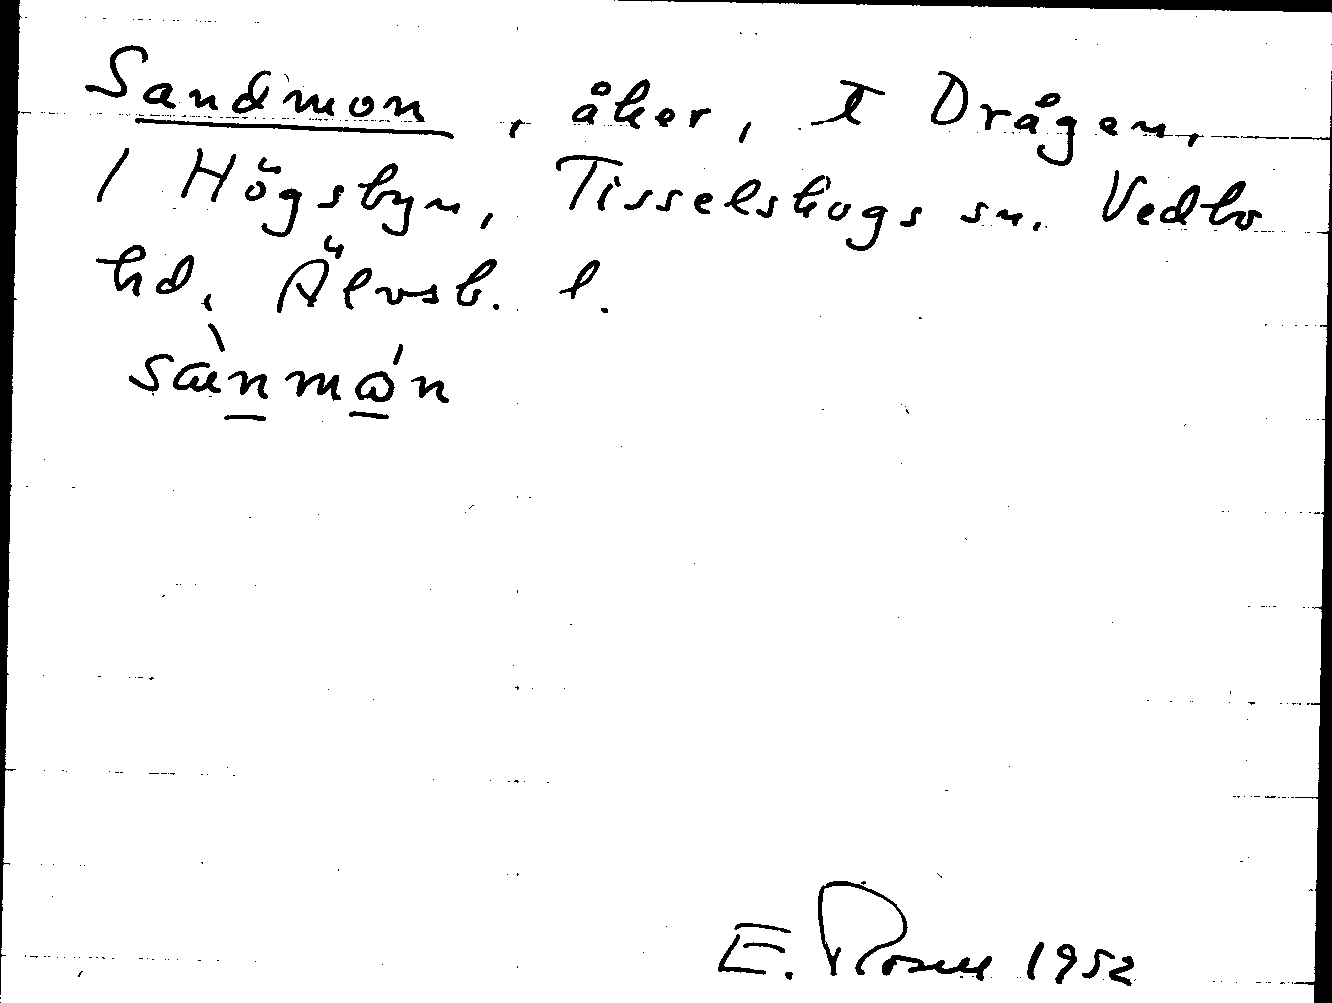 Sandmon, åker, t Drågen,
/ Högsbyn, Tisselskogs sn. Vedbo
hd, Älvsb. l.
sànmǻn
E. Rosell 1952